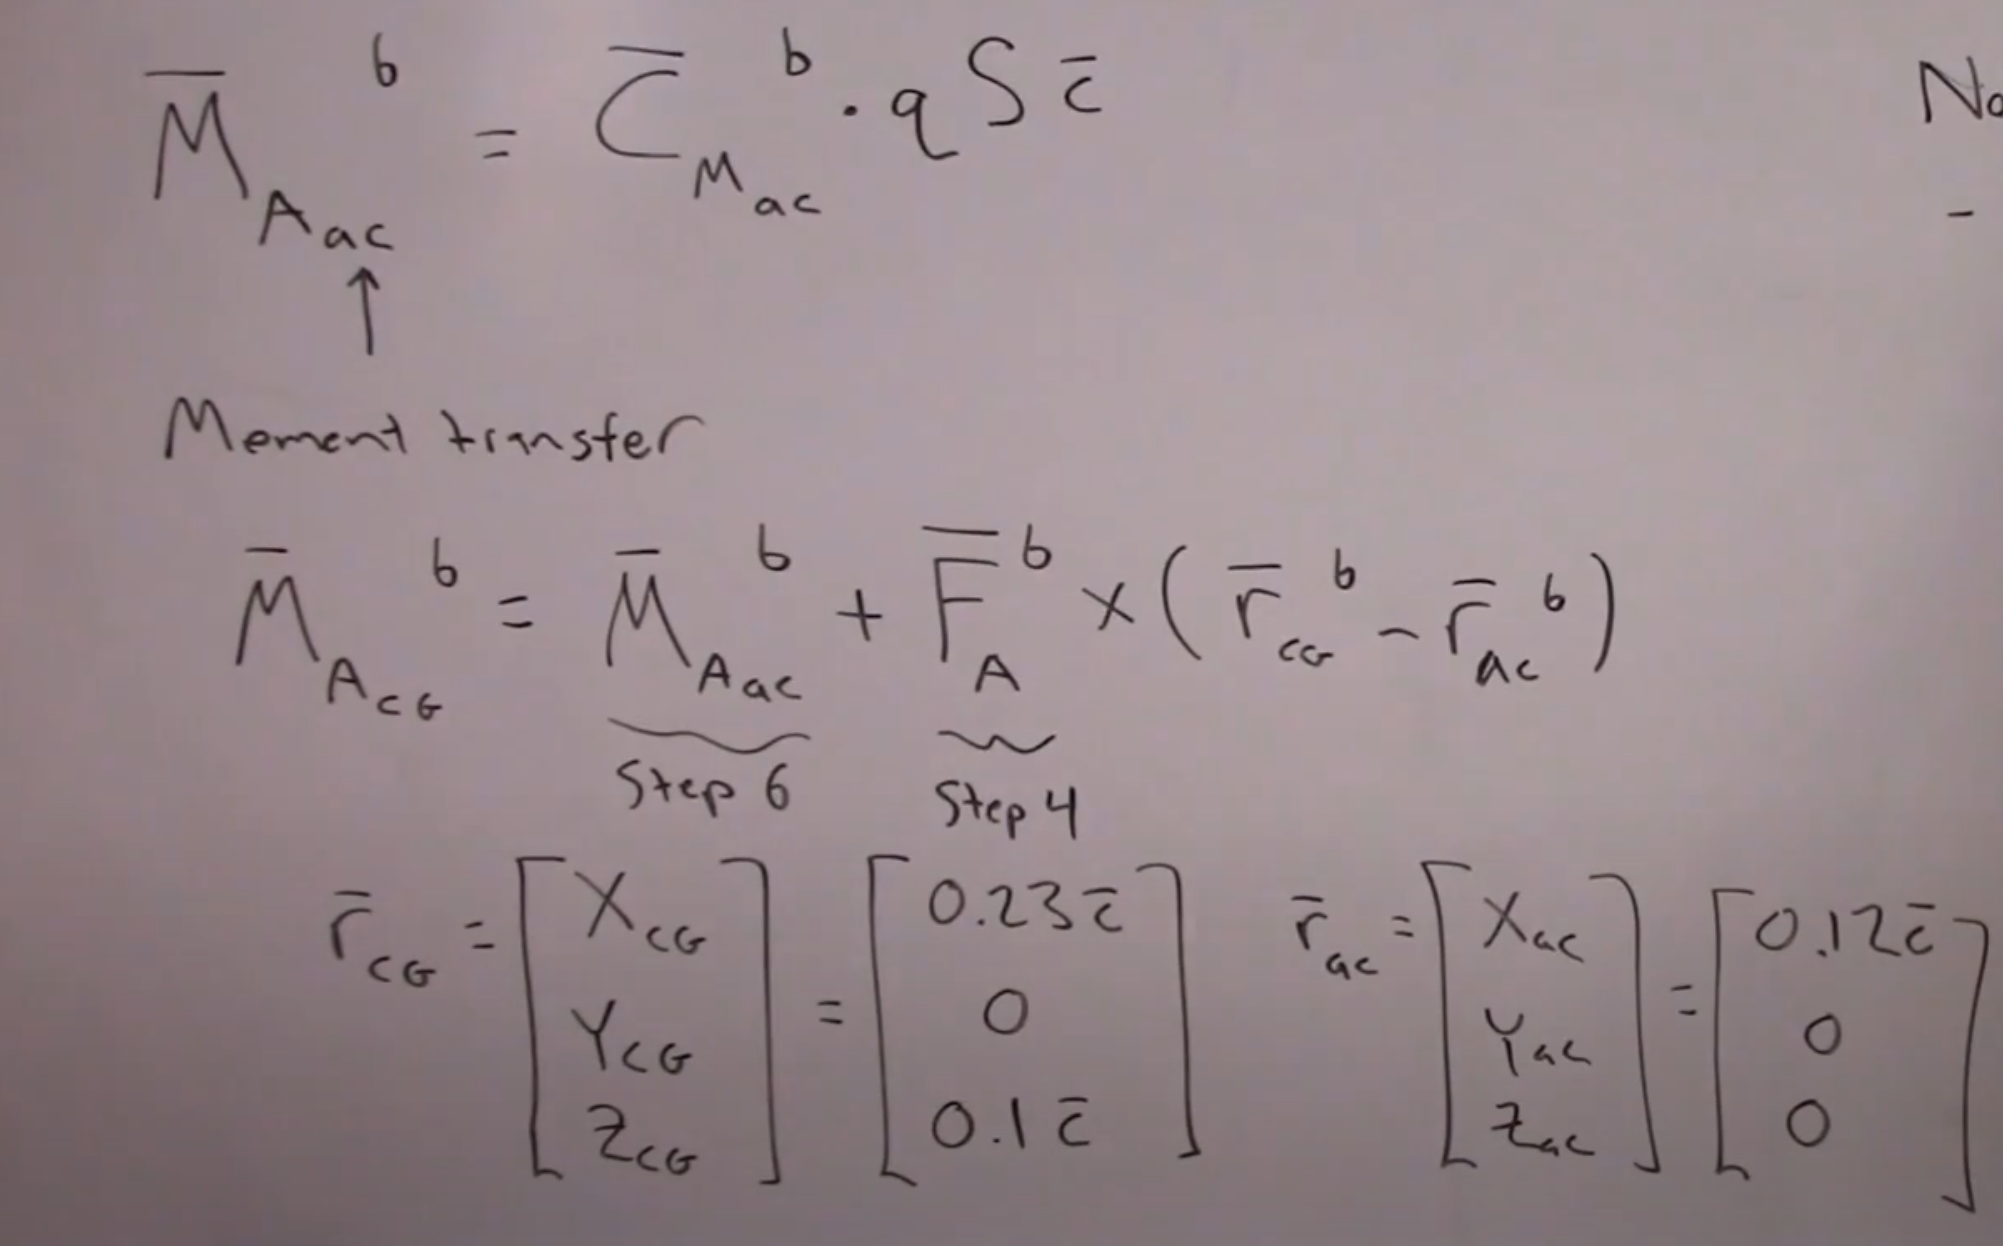 M̄_{A_{ac}}^b = C̄_{M_{ac}}^b · q S c̄
No
-
↑
Mement transfer
M̄_{A_{CG}}^b = M̄_{A_{ac}}^b + F̄_A^b × (r̄_{CG}^b - r̄_{ac}^b)
Step 6 Step 4
r̄_{CG} = [X_{CG} Y_{CG} Z_{CG}] = [0.23c̄ 0 0.1c̄] r̄_{ac} = [X_{ac} Y_{ac} Z_{ac}] = [0.12c̄ 0 0]